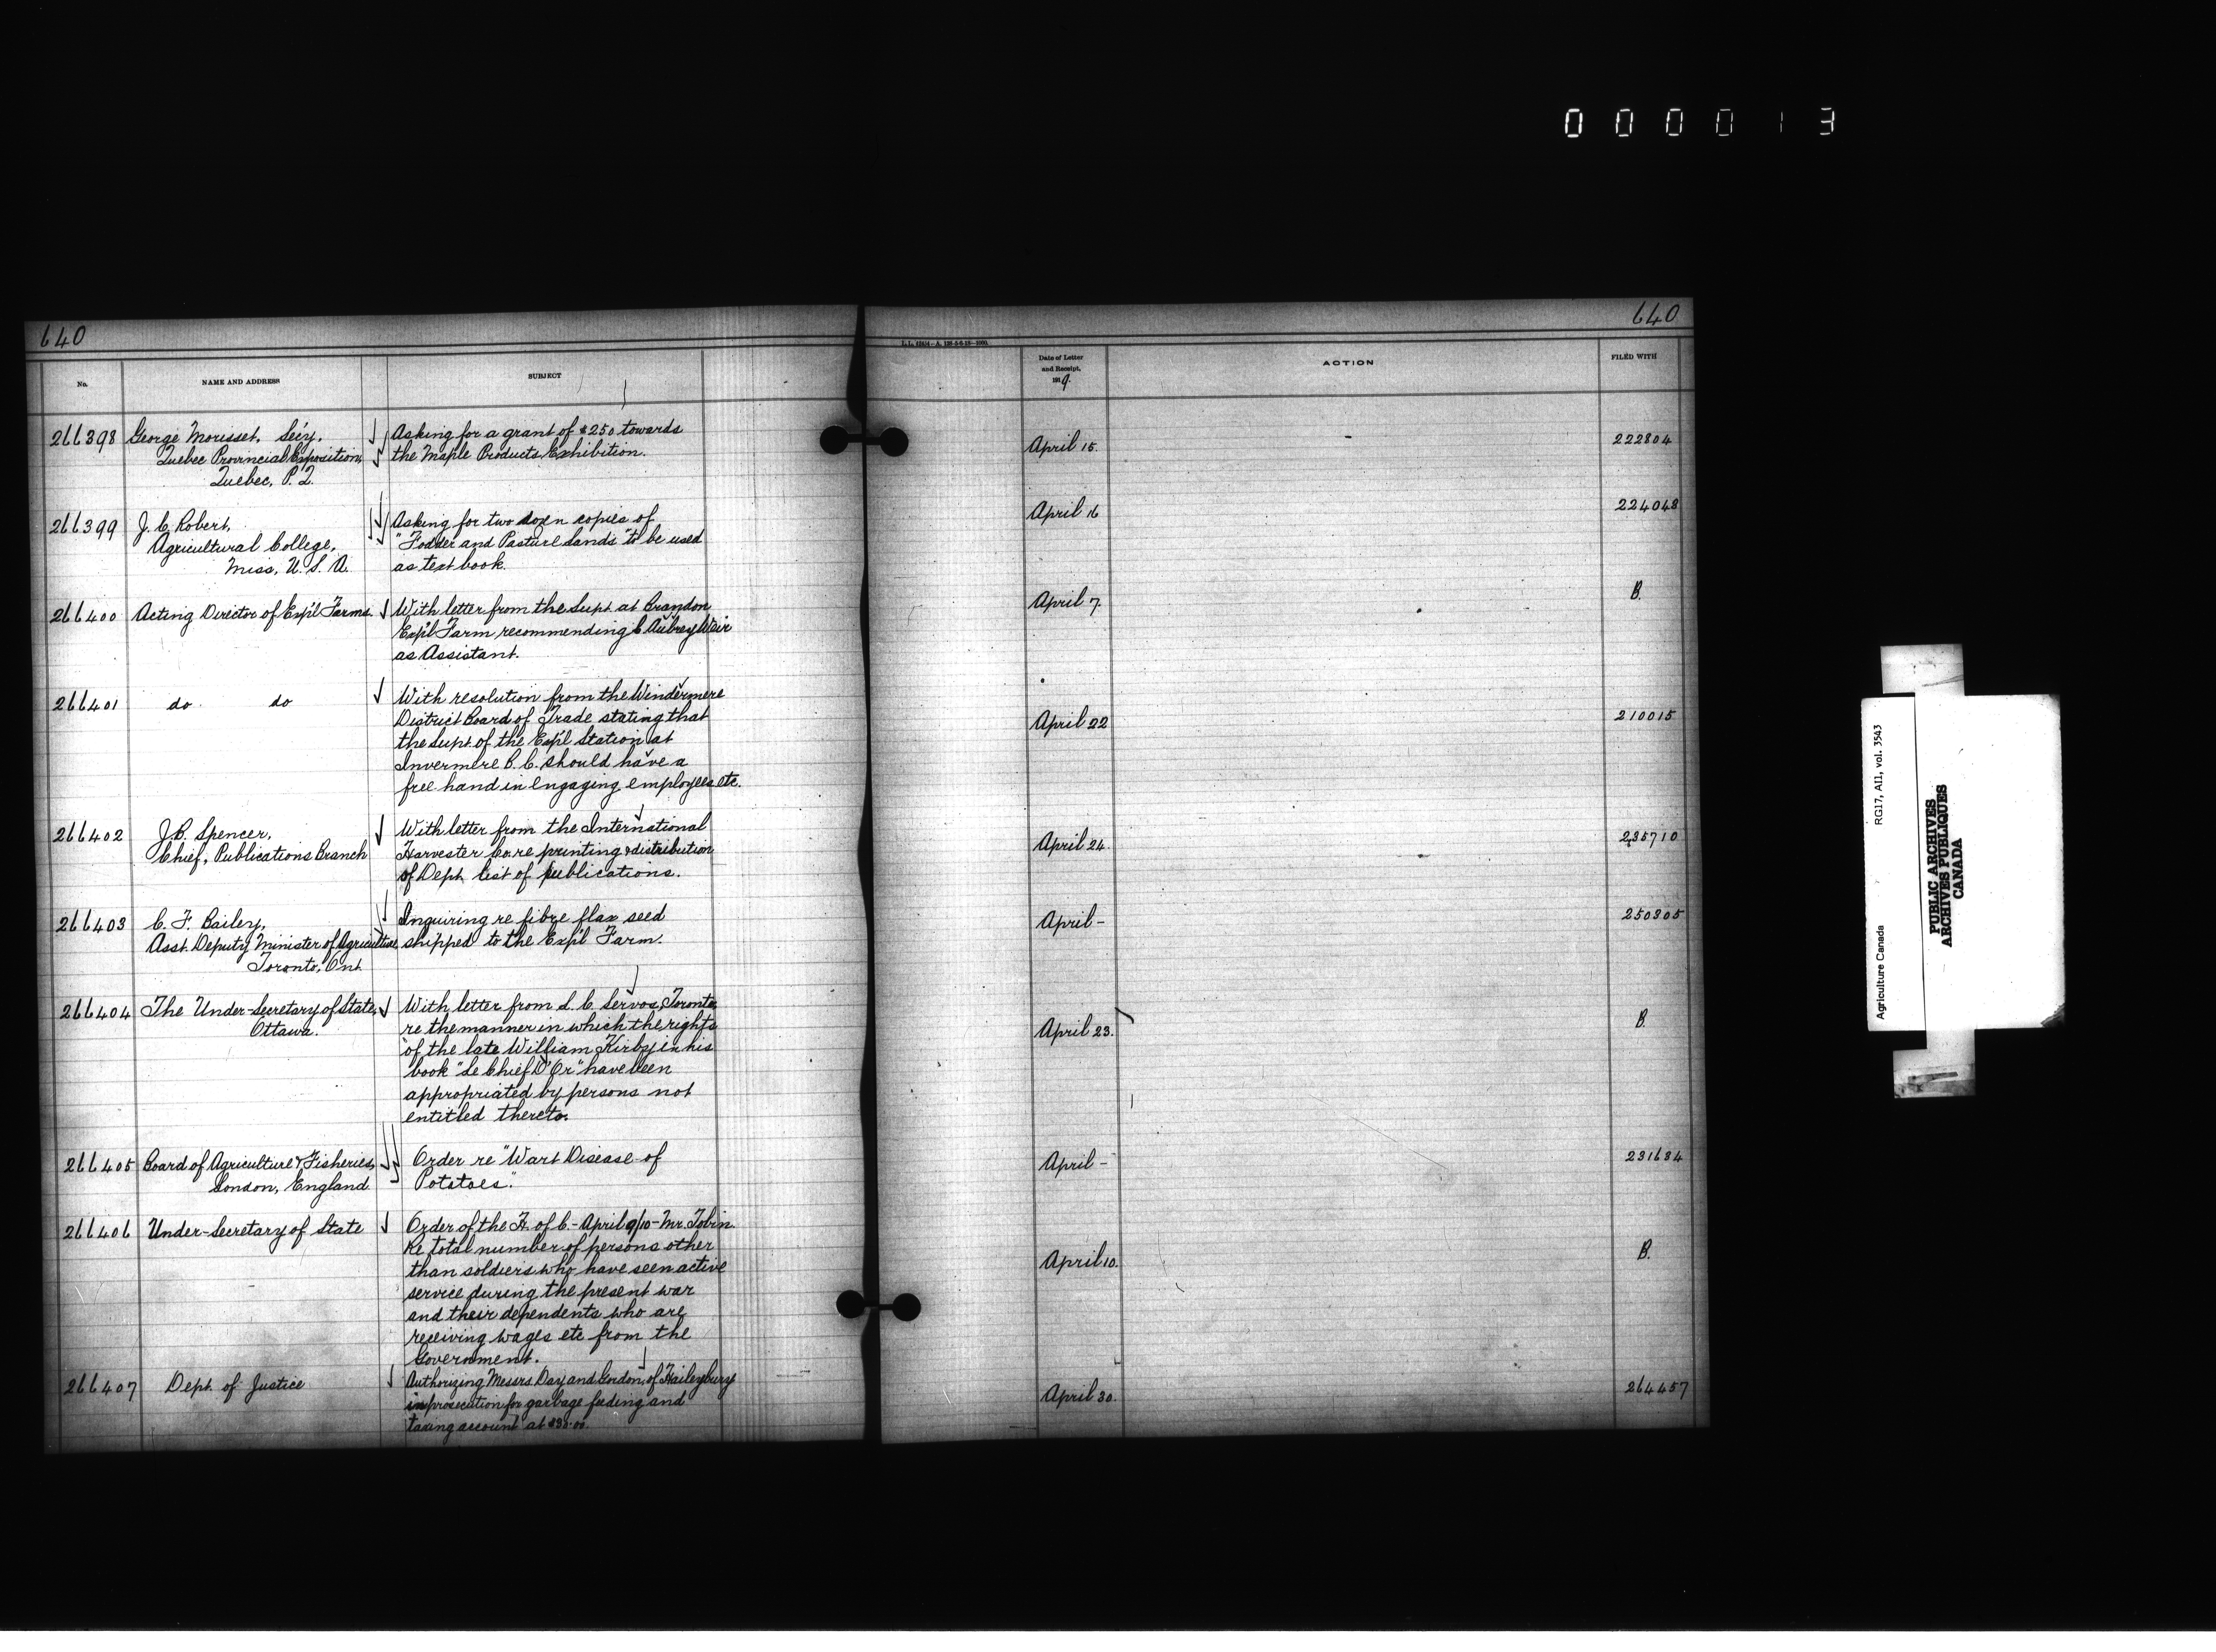 000013
640
640
L.L. 62404-A. 128-5-6-18-1000.
No.
NAME AND ADDRESS
SUBJECT
Date of Letter
and Receipt,
1919.
ACTION
FILED WITH
266398 George Morisset, Sec'y. Asking for a grant of $250 towards April 15. 222804
Quebec Provincial Exposition, the Maple Products Exhibition.
Quebec, P.Q.
266399 J. C. Robert, Asking for two dozen copies of April 16 224048
Agricultural College, "Fodder and Pasture Lands" to be used
Miss, U.S.A. as text book.
266400 Acting Director of Exp'l Farms. With letter from the Supt. at Brandon April 7. B.
Exp'l Farm recommending C Aubrey Weir
as Assistant.
266401 do do With resolution from the Windermere April 22 210015
District Board of Trade stating that
the Supt. of the Exp'l Station at
Invermere B.C. should have a
free hand in engaging employees etc.
266402 J.B. Spencer, With letter from the International April 24. 235710
Chief, Publications Branch Harvester Co. re printing & distribution
of Dept. list of publications.
266403 C. F. Bailey, Inquiring re fibre flax seed April - 250305
Asst. Deputy Minister of Agriculture, shipped to the Exp'l Farm.
Toronto, Ont.
266404 The Under-Secretary of State, With letter from S. C. Servos, Toronto, April 23. B.
Ottawa. re the manner in which the rights
of the late William Kirby in his
book "Le Chief D'Or" have been
appropriated by persons not
entitled thereto.
266405 Board of Agriculture & Fisheries, Order re "Wart Disease of April - 231684
London, England. Potatoes."
266406 Under-Secretary of State Order of the H. of C. - April 9/10 - Mr. Tobin April 10. B.
Re total number of persons other
than soldiers who have seen active
service during the present war
and their dependents who are
receiving wages etc from the
Government.
266407 Dept. of Justice Authorizing Messrs. Day and Gordon, of Haileybury April 30. 264457
in prosecution for garbage feeding and
taxing account at $30.00.
Agriculture Canada RG17, AII, vol. 3543
PUBLIC ARCHIVES
ARCHIVES PUBLIQUES
CANADA